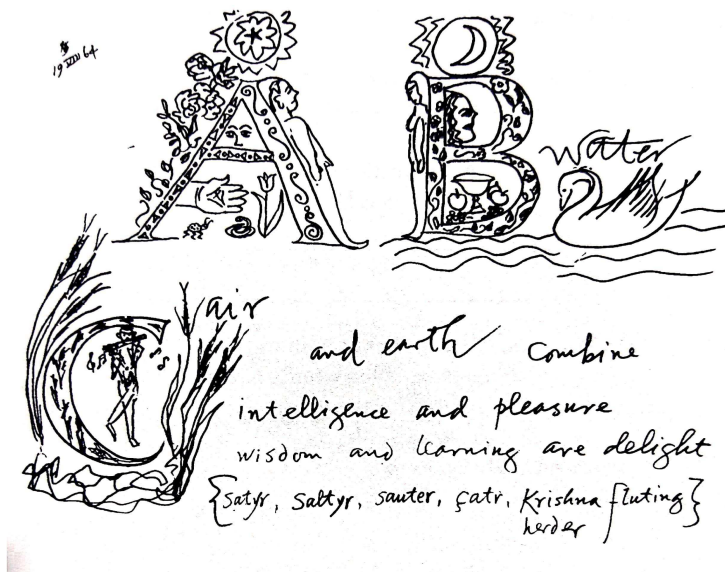 19 VIII 64
A B
water
C air
and earth combine
intelligence and pleasure
wisdom and learning are delight
{satyr, saltyr, sauter, çatr, Krishna fluting}
herder